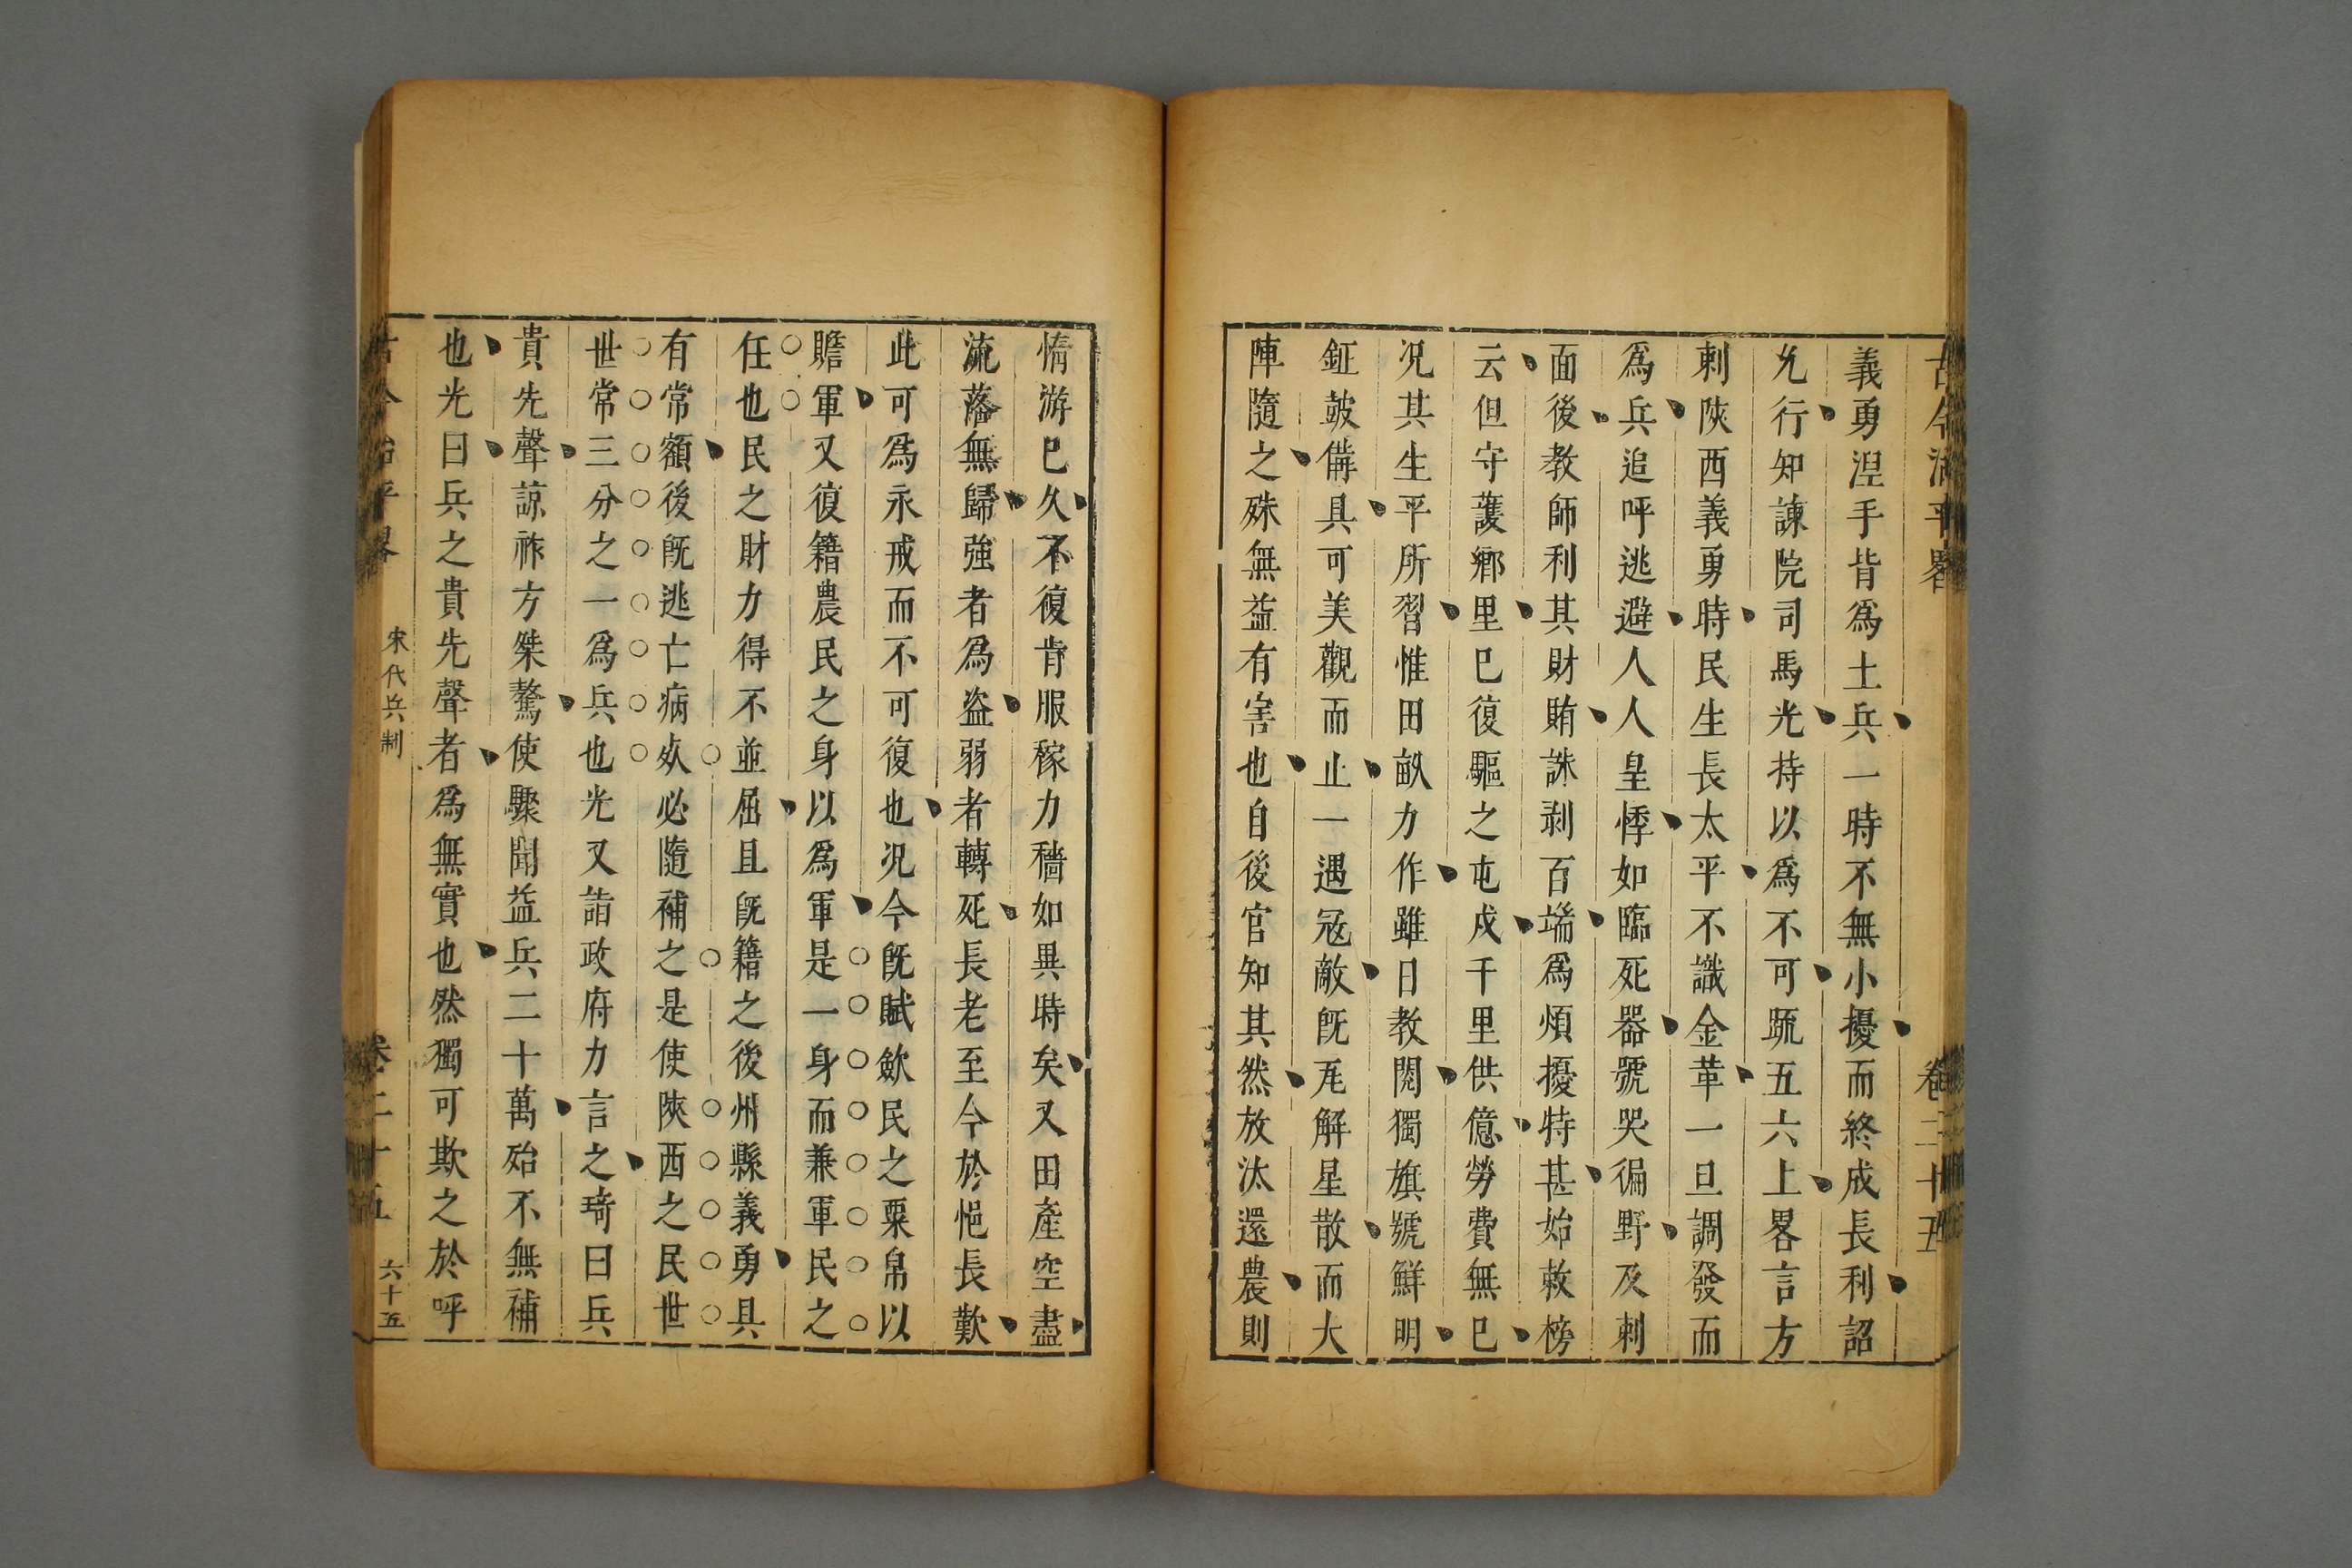 古今治平畧 卷二十五
義勇湼手背爲土兵一時不無小擾而終成長利詔
允行知諫院司馬光持以爲不可䟽五六上畧言方
刺陝西義勇時民生長太平不識金革一旦調發而
爲兵追呼逃避人人皇悸如臨死器號哭徧野及刺
面後教師利其財賄誅剥百端爲煩擾特甚始敕榜
云但守護鄉里巳復驅之屯戍千里供億勞費無巳
况其生平所習惟田畝力作雖日教閱獨旗號鮮明
鉦皷備具可美觀而止一遇冦敵旣𤓰解星散而大
陣隨之殊無益有害也自後官知其然放汰還農則
惰游巳久不復肯服稼力穡如異時矣又田產空盡
流落無歸強者爲盗弱者轉死長老至今於悒長歎
此可爲永戒而不可復也况今旣賦歛民之粟帛以
贍軍又復籍農民之身以爲軍是一身而兼軍民之
任也民之財力得不並屈且旣籍之後州縣義勇具
有常額後旣逃亡病死必隨補之是使陝西之民世
世常三分之一爲兵也光又詣政府力言之琦曰兵
貴先聲諒祚方桀驁使驟聞益兵二十萬殆不無補
也光曰兵之貴先聲者爲無實也然獨可欺之於呼
古今治平畧 宋代兵制 卷二十五 六十五